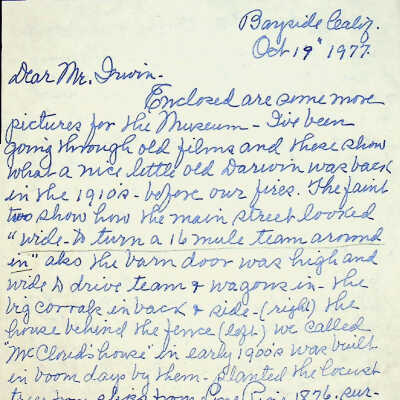 Bayside Calif.
Oct 19" 1977.
Dear Mr. Irwin -
Enclosed are some more
pictures for the Museum - I've been
going through old films and these show
what a nice little old Darwin was back
in the 1910's - before our fires. The faint
two show how the main street looked
"wide - to turn a 16 mule team around
in" also the barn door was high and
wide to drive team & wagons in - the
big corrals in back & side - (right) the
house behind the fence (left) we called
"McClouds house" in early 1900's was built
in boom days by them - planted the locust
trees from slips from Lone Pine 1876. sur-